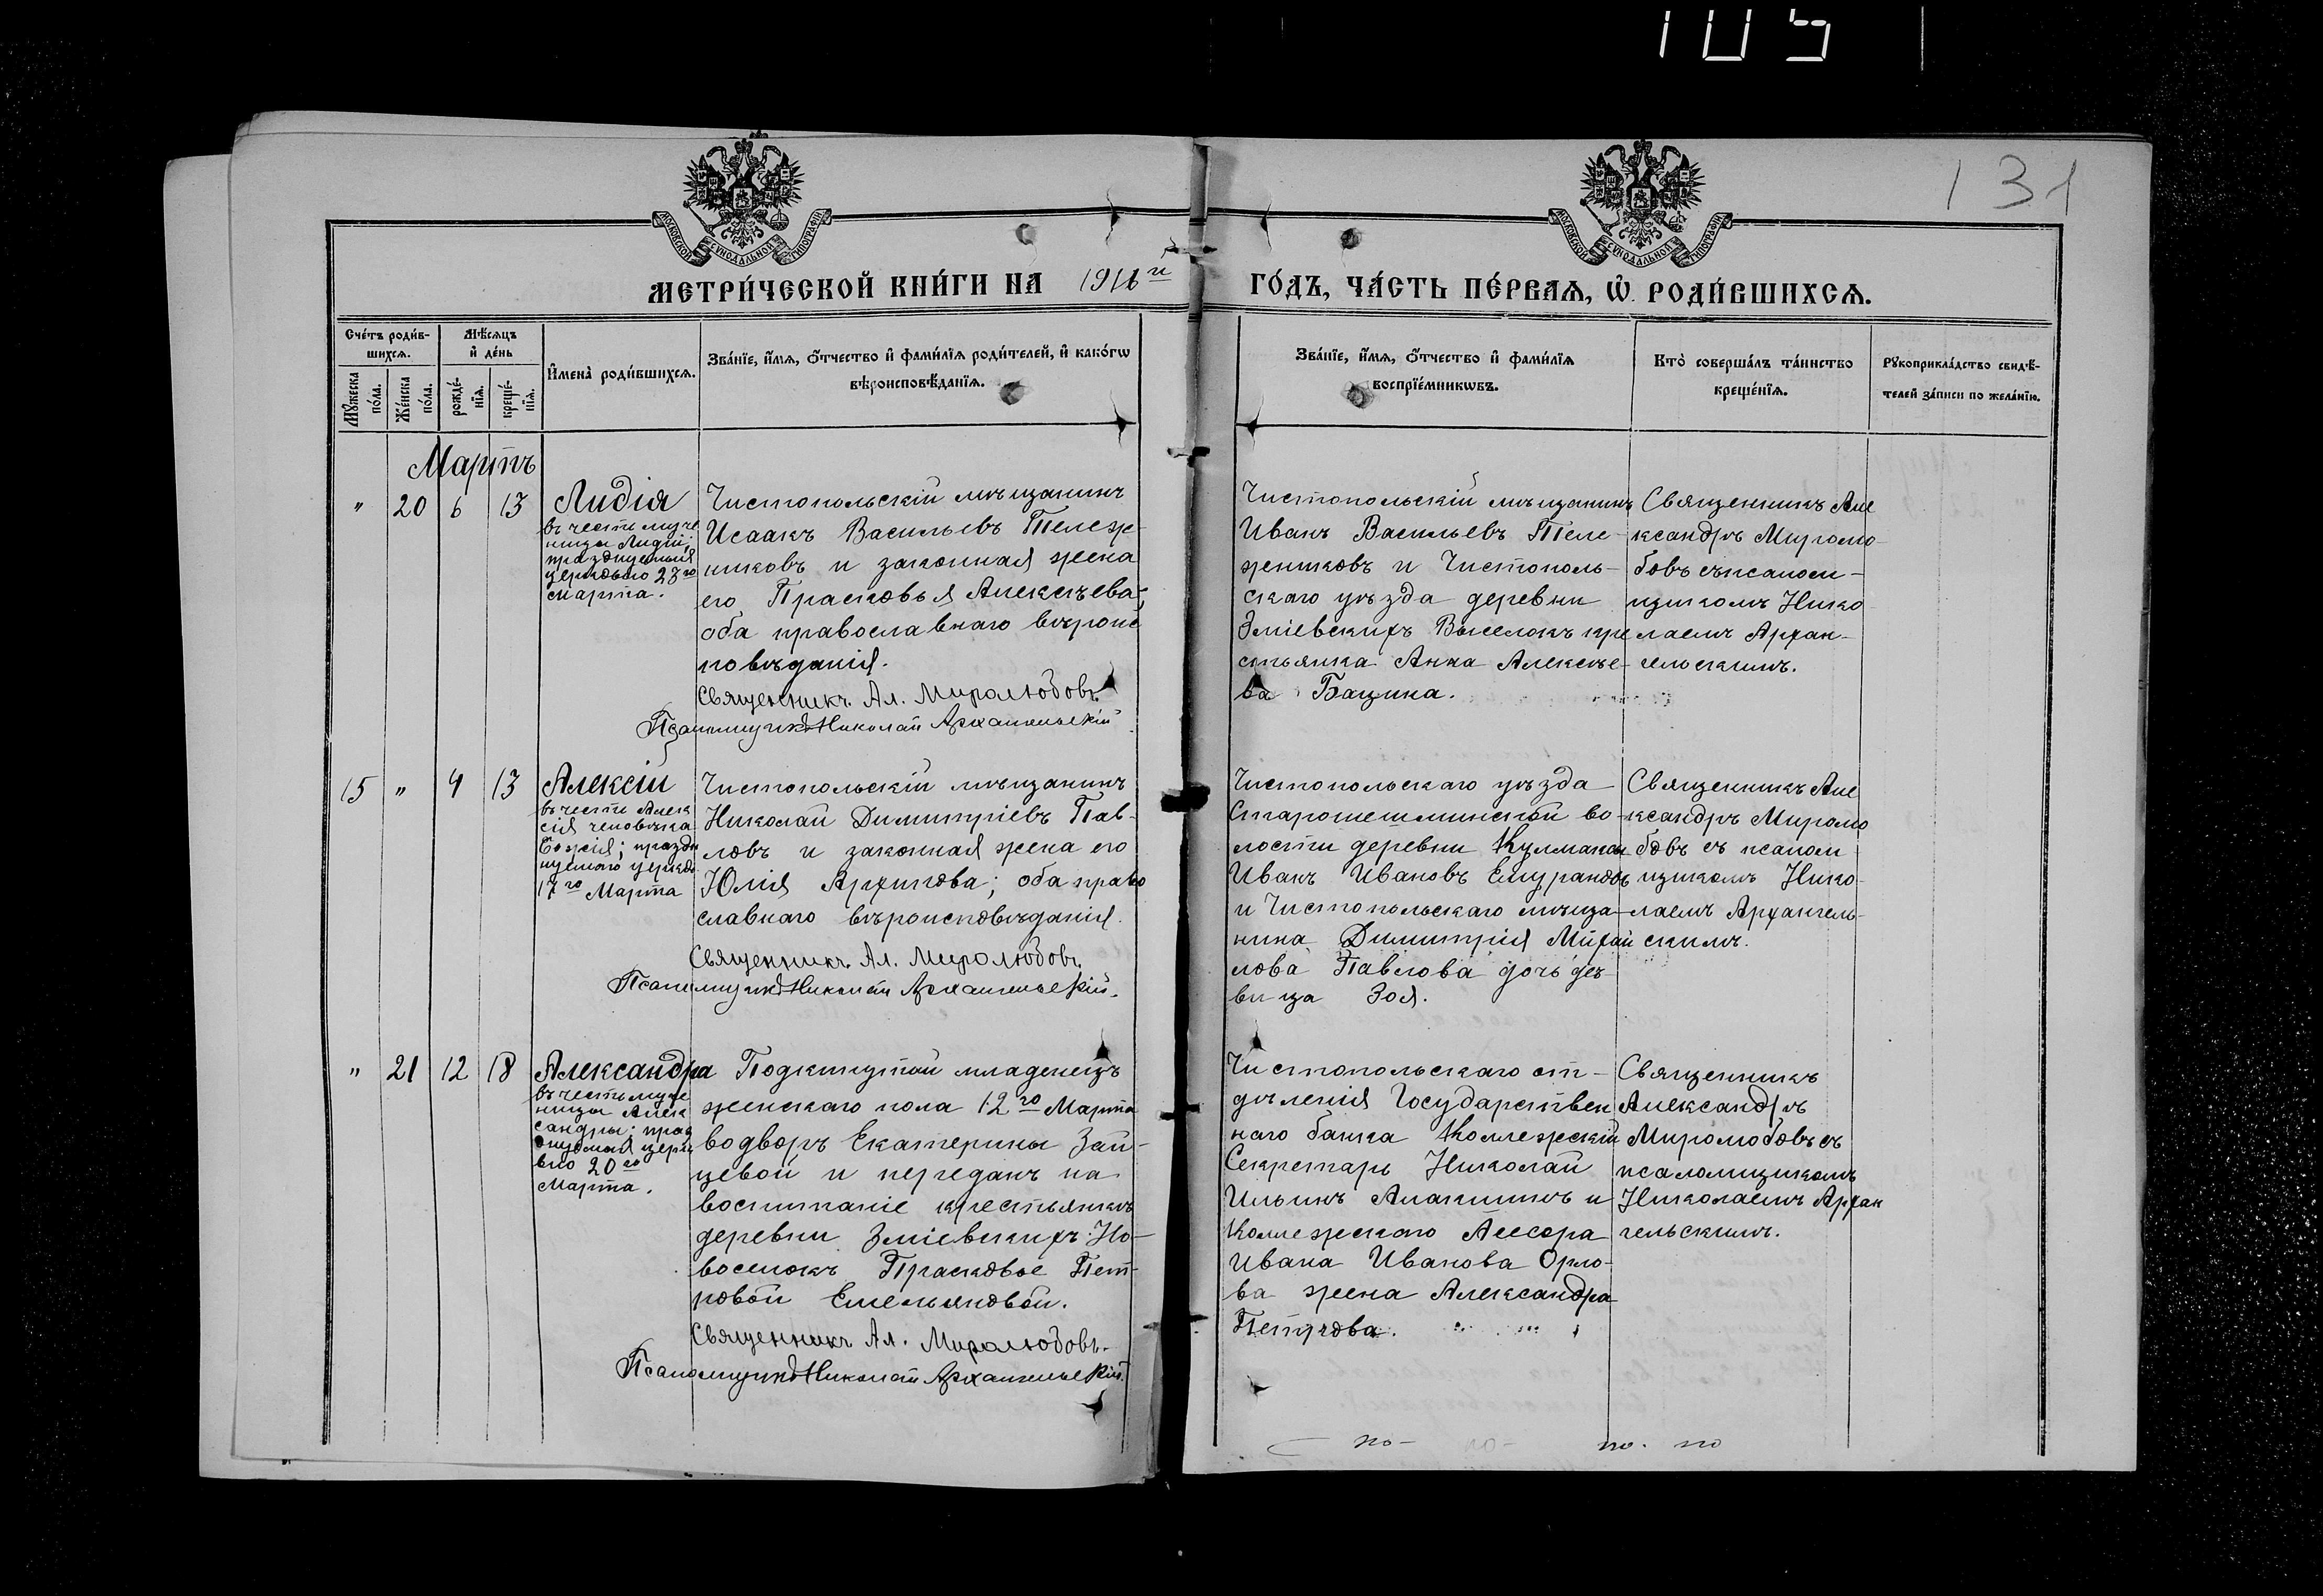 105
131
МОСКОВСКОЙ СѴНОДАЛЬНОЙ ТИПОГРАФІИ
МОСКОВСКОЙ СѴНОДАЛЬНОЙ ТИПОГРАФІИ
МЕТРИ́ЧЕСКОЙ КНИ́ГИ НА 1916 й
ГО́ДЪ, ЧА́СТЬ ПЕ́РВАѦ, Ѡ РОДИ́ВШИХСѦ.
Сче́тъ роди́в-
шихсѧ.
Мѣ́сѧцъ
и҆ де́нь
Мꙋ́жеска по́ла.
Же́нска по́ла.
рожде́-
нїѧ.
креще́-
нїѧ.
И҆мена̀ роди́вшихсѧ.
Зва́нїе, и҆́мѧ, ѻ҆́тчество и҆ фами́лїѧ роди́телей, и҆ како́гѡ
вѣроисповѣ́данїѧ.
Зва́нїе, и҆́мѧ, ѻ҆́тчество и҆ фами́лїѧ
воспрїе́мникѡвъ.
Кто̀ соверша́лъ та́инство
креще́нїѧ.
Рꙋкоприкла́дство свидѣ́-
телей за́писи по жела́нїю.
Мартъ
" 20 6 13 Лидія
въ честь муче
ницы Лидіи;
празднуемыя
церковью 23го
марта.
Чистопольскій мѣщанинъ
Исаакъ Васильевъ Тележ-
никовъ и законная жена
его Прасковья Алексѣева;
оба православнаго вѣроис
повѣданія.
Священникъ Ал. Миролюбовъ
Псаломщикъ Николай Архангельскій
Чистопольскій мѣщанинъ
Иванъ Васильевъ Теле-
жниковъ и Чистополь-
скаго уѣзда деревни
Зміевскихъ Выселокъ кре
стьянка Анна Алексѣе-
ва Бацина.
Священникъ Але
ксандръ Миролю-
бовъ съ псалом-
щикомъ Нико
лаемъ Архан-
гельскимъ.
15 " 4 13 Алексій
въ честь Алек
сія человѣка
Божія; праздн
уемаго церков
17го Марта
Чистопольскій мѣщанинъ
Николай Димитріевъ Пав-
ловъ и законная жена его
Юлія Архипова; оба право
славнаго вѣроисповѣданія.
Священникъ Ал. Миролюбовъ.
Псаломщикъ Николай Архангельскій.
Чистопольскаго уѣзда
Старошешминской во-
лости деревни
Иванъ Ивановъ
и Чистопольскаго мѣща-
нина Димитрія Михай
лова Павлова дочь дѣ-
вица Зоя.
Священникъ Але
ксандръ Миролю
бовъ съ псалом
щикомъ Нико-
лаемъ Архангель-
скимъ.
" 21 12 18 Александра
въ честь муче
ницы Алек
сандры; праз
днуемыя церк
вью 20го
Марта.
Подкинутый младенецъ
женскаго пола 12го Марта
во дворъ Екатерины Зай-
цевой и переданъ на
воспитаніе крестьянкѣ
деревни Зміевскихъ Но-
воселокъ Прасковье Пет-
ровой Емельяновой.
Священникъ Ал. Миролюбовъ.
Псаломщикъ Николай Архангельскій.
Чистопольскаго от-
дѣленія Государствен
наго банка Коллежскій
Секретарь Николай
Ильинъ и
Коллежскаго Ассесора
Ивана Иванова Орло-
ва жена Александра
Петрова.
Священникъ
Александръ
Миролюбовъ съ
псаломщикомъ
Николаемъ Архан
гельскимъ.
по- по- по. по